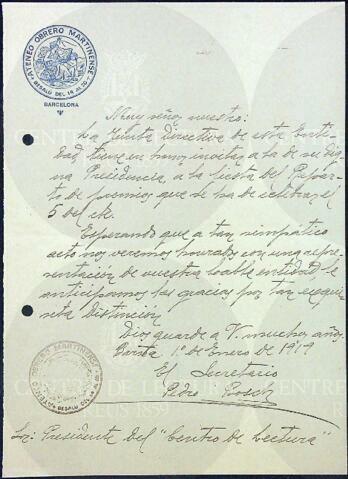 ATENEO OBRERO MARTINENSE
BESALÚ DEL 14 AL 20
BARCELONA
Muy señor nuestro:
La Junta Directiva de esta Enti-
dad, tiene en honor invitar a la de su dig-
na Presidencia, a la fiesta del Repar-
to de premios que se ha de celebrar el
5 del cte.
Esperando que a tan simpático
acto nos veremos honrados con una repre-
sentación de vuestra loable entidad, le
anticipamos las gracias por tan exqui-
sita distinción
Dios guarde a V. muchos años.
1º de Enero de 1919
El Secretario
Pedro Bosch
ATENEO OBRERO MARTINENSE
BESALÚ DEL
CENTRE DE LECTURA
REUS 1859
Sr. Presidente del "Centro de Lectura"